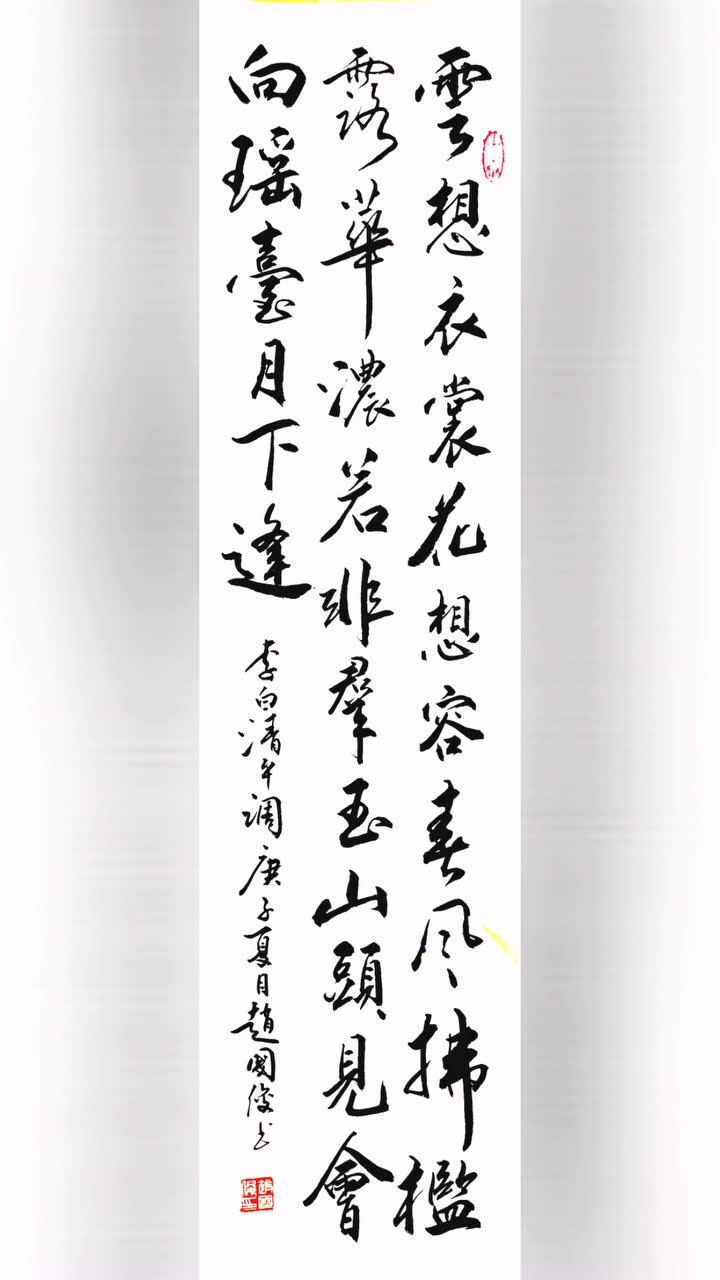 雲想衣裳花想容春風拂檻
露華濃若非羣玉山頭見會
向瑶臺月下逢
李白清平调庚子夏日趙國俊书